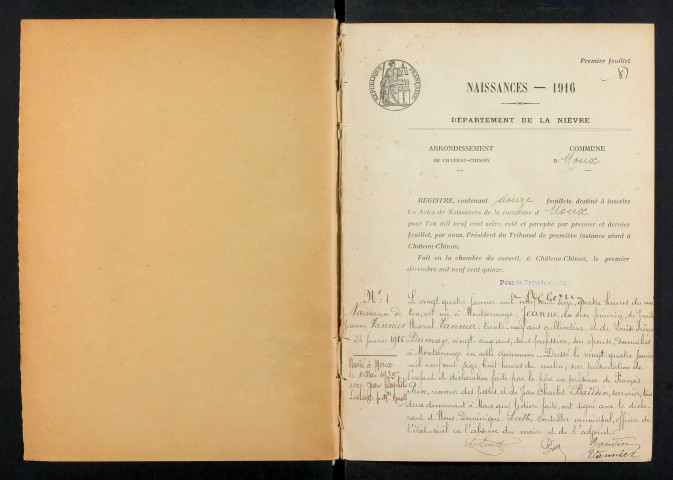 Premier feuillet
RÉPUBLIQUE FRANÇAISE
NAISSANCES — 1916
DÉPARTEMENT DE LA NIÈVRE
ARRONDISSEMENT
DE CHATEAU-CHINON
COMMUNE
D Moux
REGISTRE, contenant douze feuillets, destiné à inscrire
les Actes de Naissances de la commune d Moux
pour l'an mil neuf cent seize, coté et paraphé par premier et dernier
feuillet, par nous, Président du Tribunal de première instance séant à
Château-Chinon.
Fait en la chambre du conseil, à Château-Chinon, le premier
décembre mil neuf cent quinze.
Pour le Président
N° 1
Naissance de
Jeanne Vannier
24 Janvier 1916
Marié à Moux
Le vingt quatre janvier mil neuf cent seize, quatre heures du ma
tin, est née à Montsermage, Jeanne, du sexe féminin, de
Vannier, trente neuf ans, cultivateur, et de Louise
Dumay, vingt cinq ans, sans profession, son épouse, domiciliés
à Montsermage en cette commune. Dressé le vingt quatre janvier
mil neuf cent seize, huit heures du matin, sur présentation de
l'enfant et déclaration faite par le père en présence de François
et de Jean Charles Bauden, serrurier, tous
deux demeurant à Moux qui, lecture faite, ont signé avec le décla
rant et Nous, Dominique conseiller municipal, officier de
l'état-civil en l'absence du maire et de l'adjoint.
Vannier